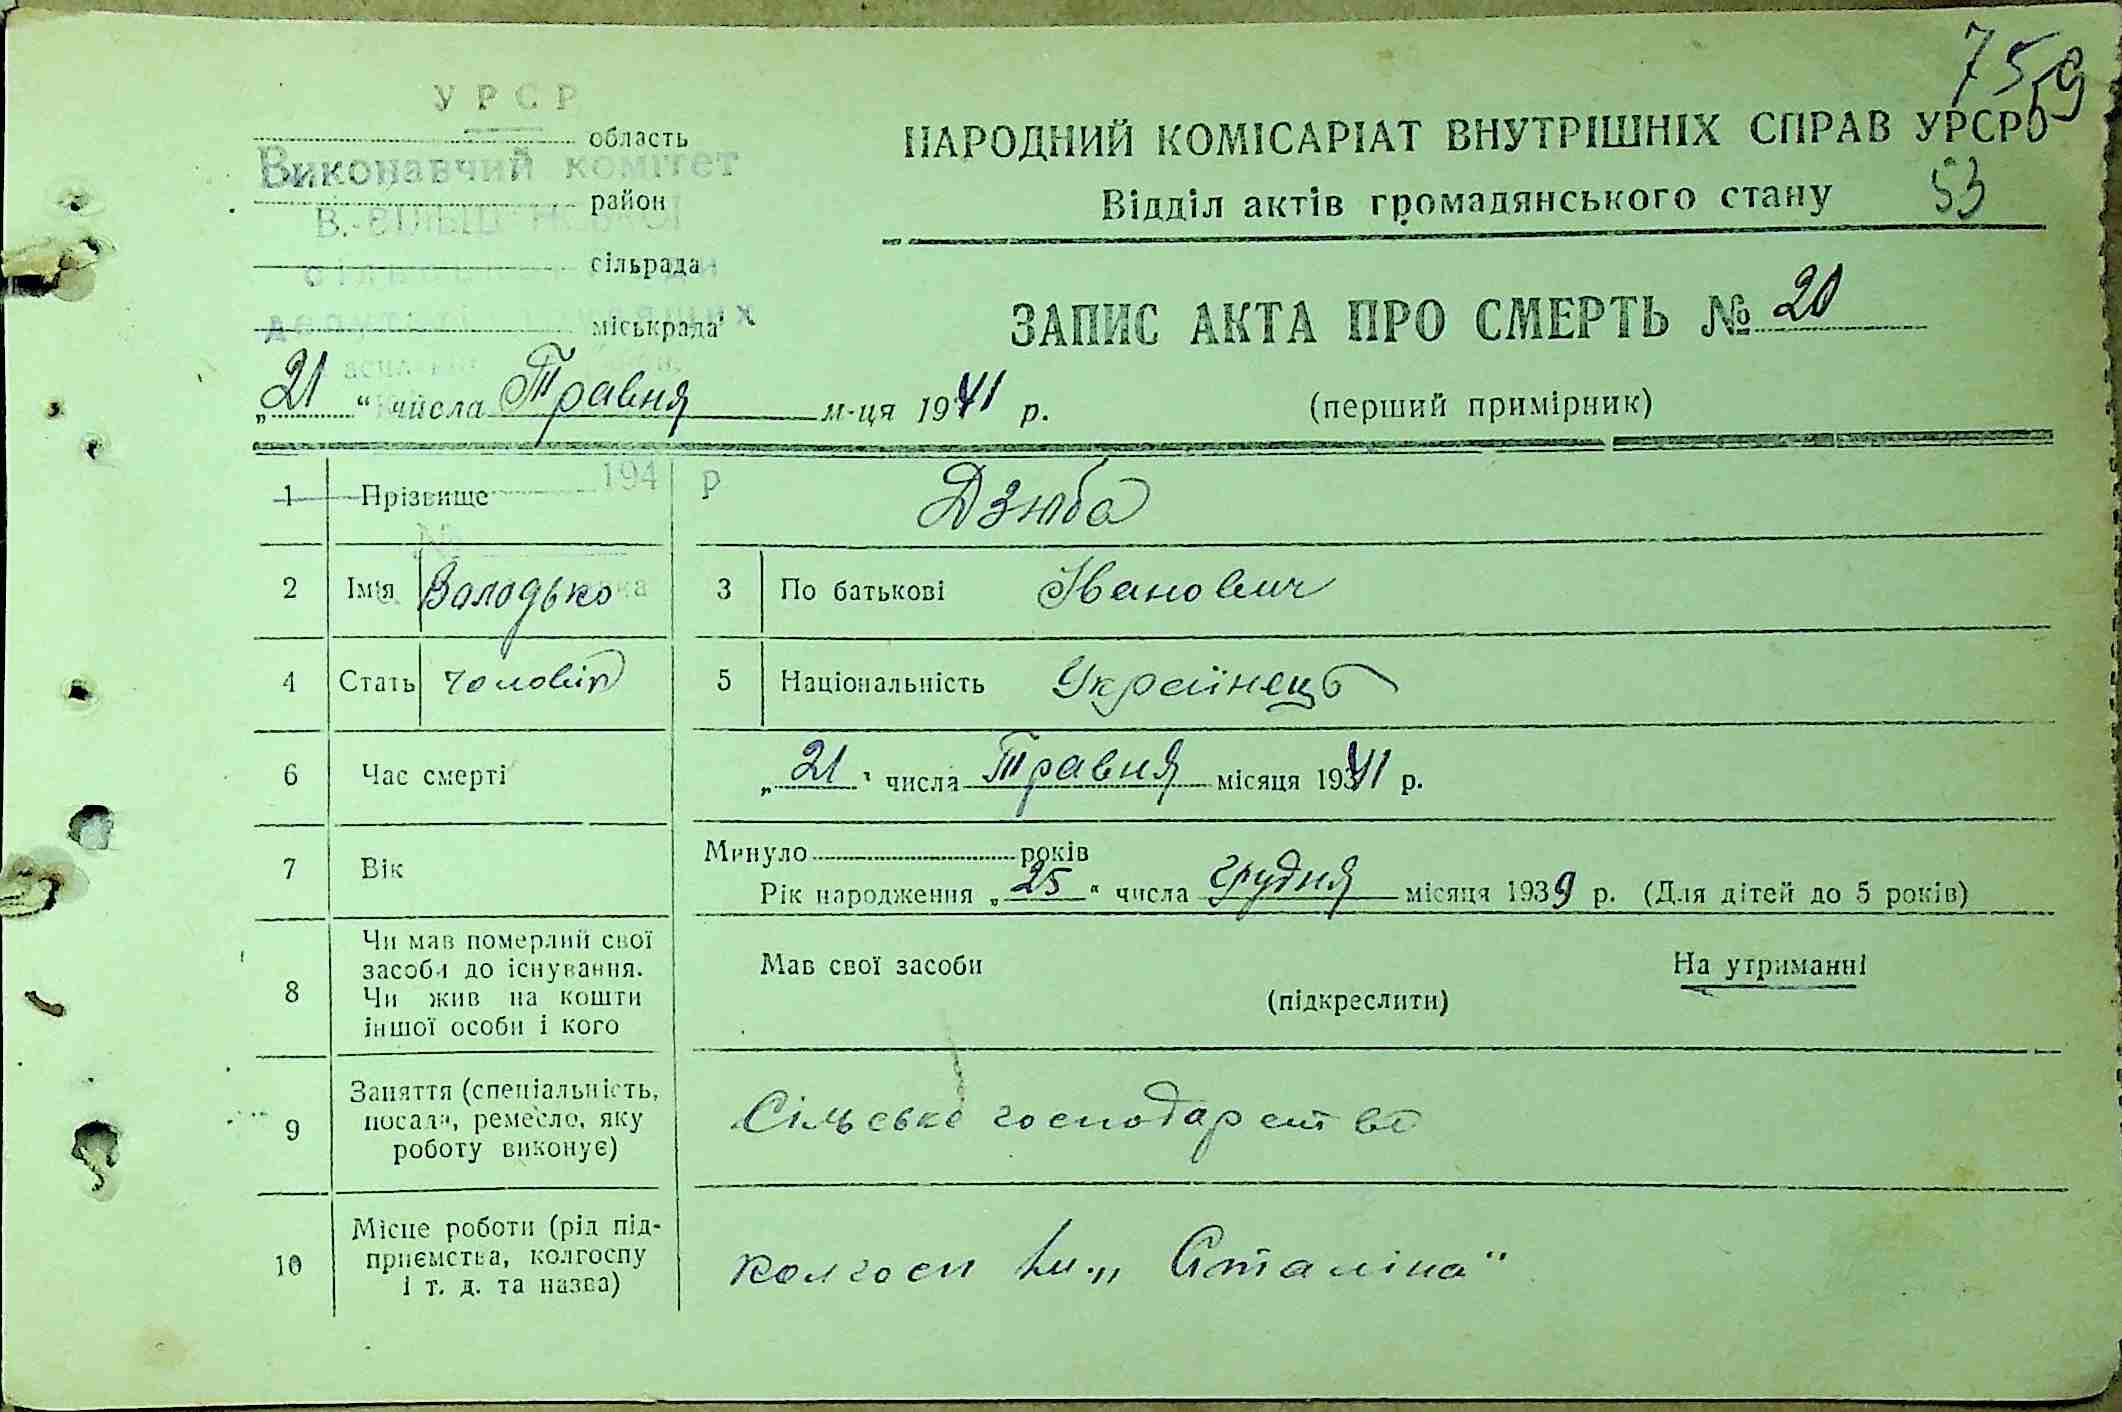 759
УРСР
область
НАРОДНИЙ КОМІСАРІАТ ВНУТРІШНІХ СПРАВ УРСР
Виконавчий комітет
район
Відділ актів громадянського стану 53
В.-
сільрада
міськрада
ЗАПИС АКТА ПРО СМЕРТЬ № 20
„21“ числа Травня м-ця 1941 р.
(перший примірник)
194 р
1 Прізвище Дзюба
№
2 Ім'я Володько 3 По батькові Іванович
4 Стать чоловік 5 Національність Українець
6 Час смерті „21“ числа Травня місяця 1941 р.
7 Вік Минуло років
Рік народження „25“ числа грудня місяця 1939 р. (Для дітей до 5 років)
8 Чи мав померлий свої засоби до існування. Чи жив на кошти іншої особи і кого
Мав свої засоби На утриманні
(підкреслити)
9 Заняття (спеціальність, посада, ремесло, яку роботу виконує) Сільське господарство
10 Місце роботи (рід підприємства, колгоспу і т. д. та назва) колгосп Ім. „Сталіна"